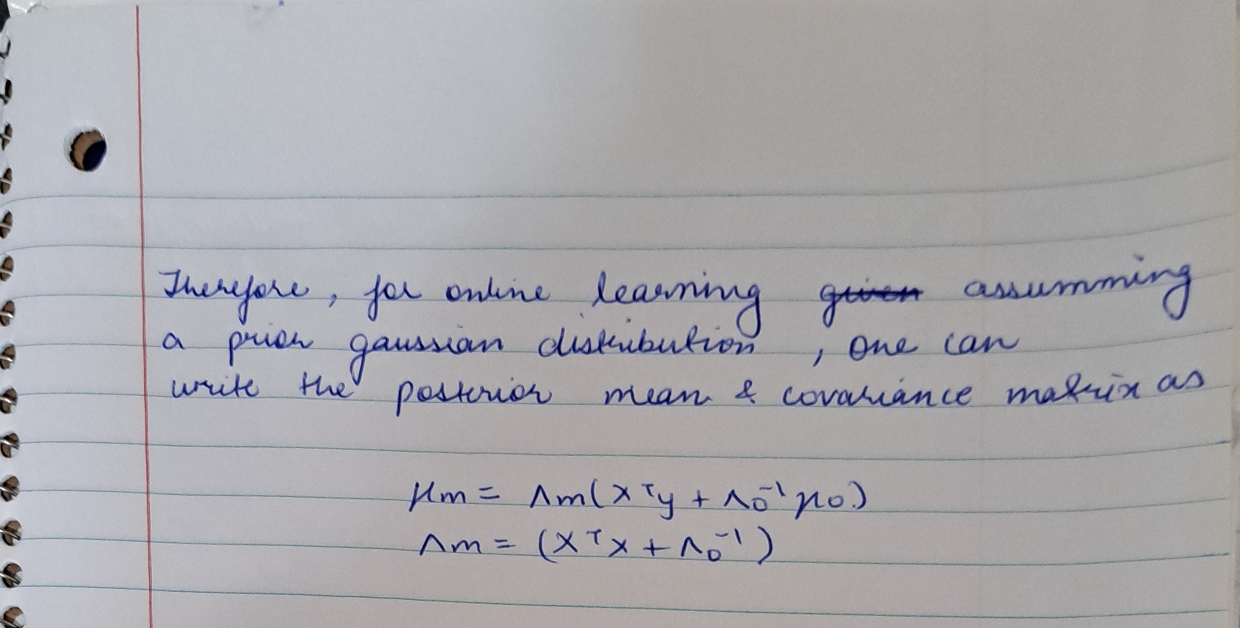 Therefore, for online learning ~~given~~ assumming
a prior gaussian distribution, one can
write the posterior mean & covariance matrix as
μm = Λm(XᵀY + Λ₀⁻¹μ₀)
Λm = (XᵀX + Λ₀⁻¹)